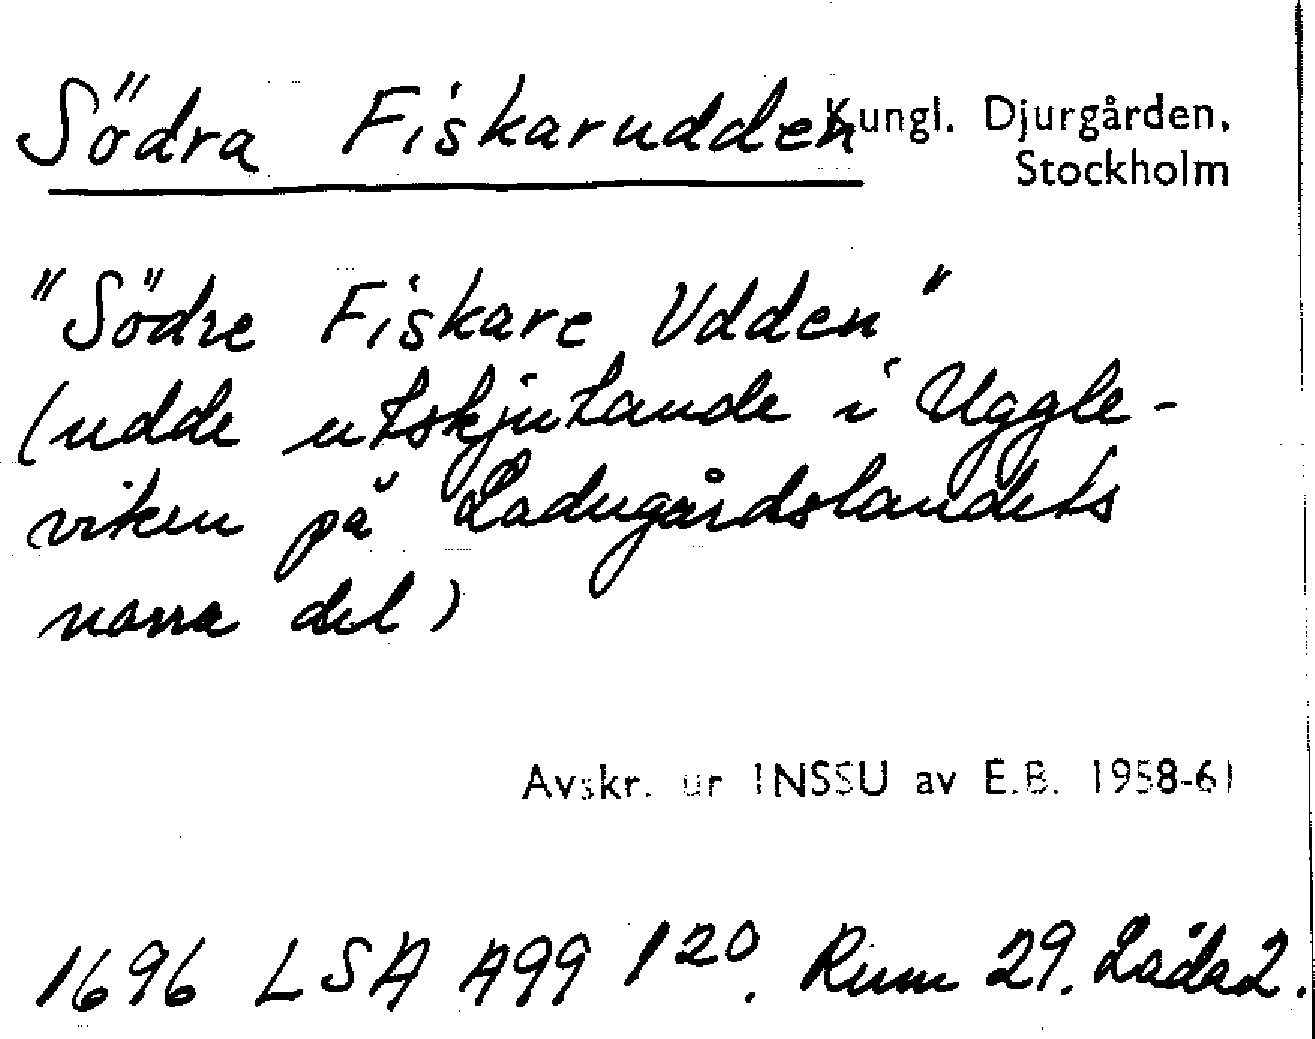 Södra Fiskarudden Kungl. Djurgården,
Stockholm
"Södre Fiskare Udden"
(udde utskjutande i Uggle-
viken på Ladugårdslandets
norra del)
Avskr. ur INSSU av E.B. 1958-61
1696 LSA A99 1²⁰. Rum 29. Låda 2.